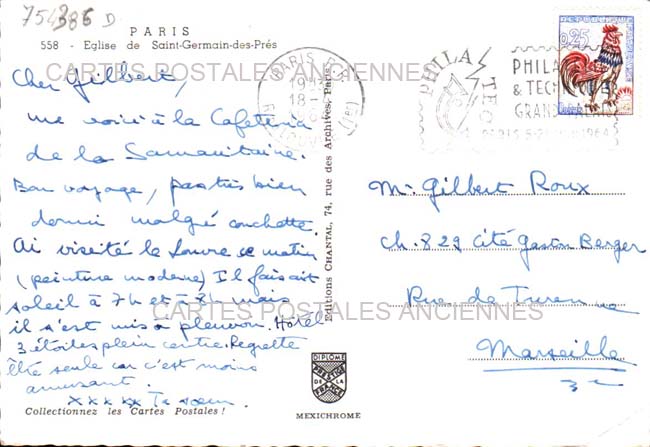 754386 D
PARIS
558 - Eglise de Saint-Germain-des-Prés
CARTES POSTALES ANCIENNES
Cher Gilbert,
me voici à la Cafeteria
de la Samaritaine.
Bon voyage, pas très bien
dormi malgré couchette.
Ai visité le Louvre ce matin
(peinture moderne) Il faisait
soleil à 7h et à 8h mais
il s'est mis à pleuvoir. Hotel
3 étoiles plein centre. Regrette
être seule car c'est moins
amusant.
xxxxx Ta soeur.
Collectionnez les Cartes Postales !
Editions CHANTAL, 74, rue des Archives, Paris
DIPLOME
PRESTIGE
DE LA
FRANCE
MEXICHROME
PARIS
18 -
R. DU LOUVRE (1er)
PHILATEC
PHILA
& TECHNIQUE
GRAND PALAIS
PARIS 5-21 1964
REPUBLIQUE
FRANCAISE
0,25
Mr Gilbert Roux
Ch. 829 Cité Gaston Berger
Rue de Turenne
Marseille
3e
CARTES POSTALES ANCIENNES